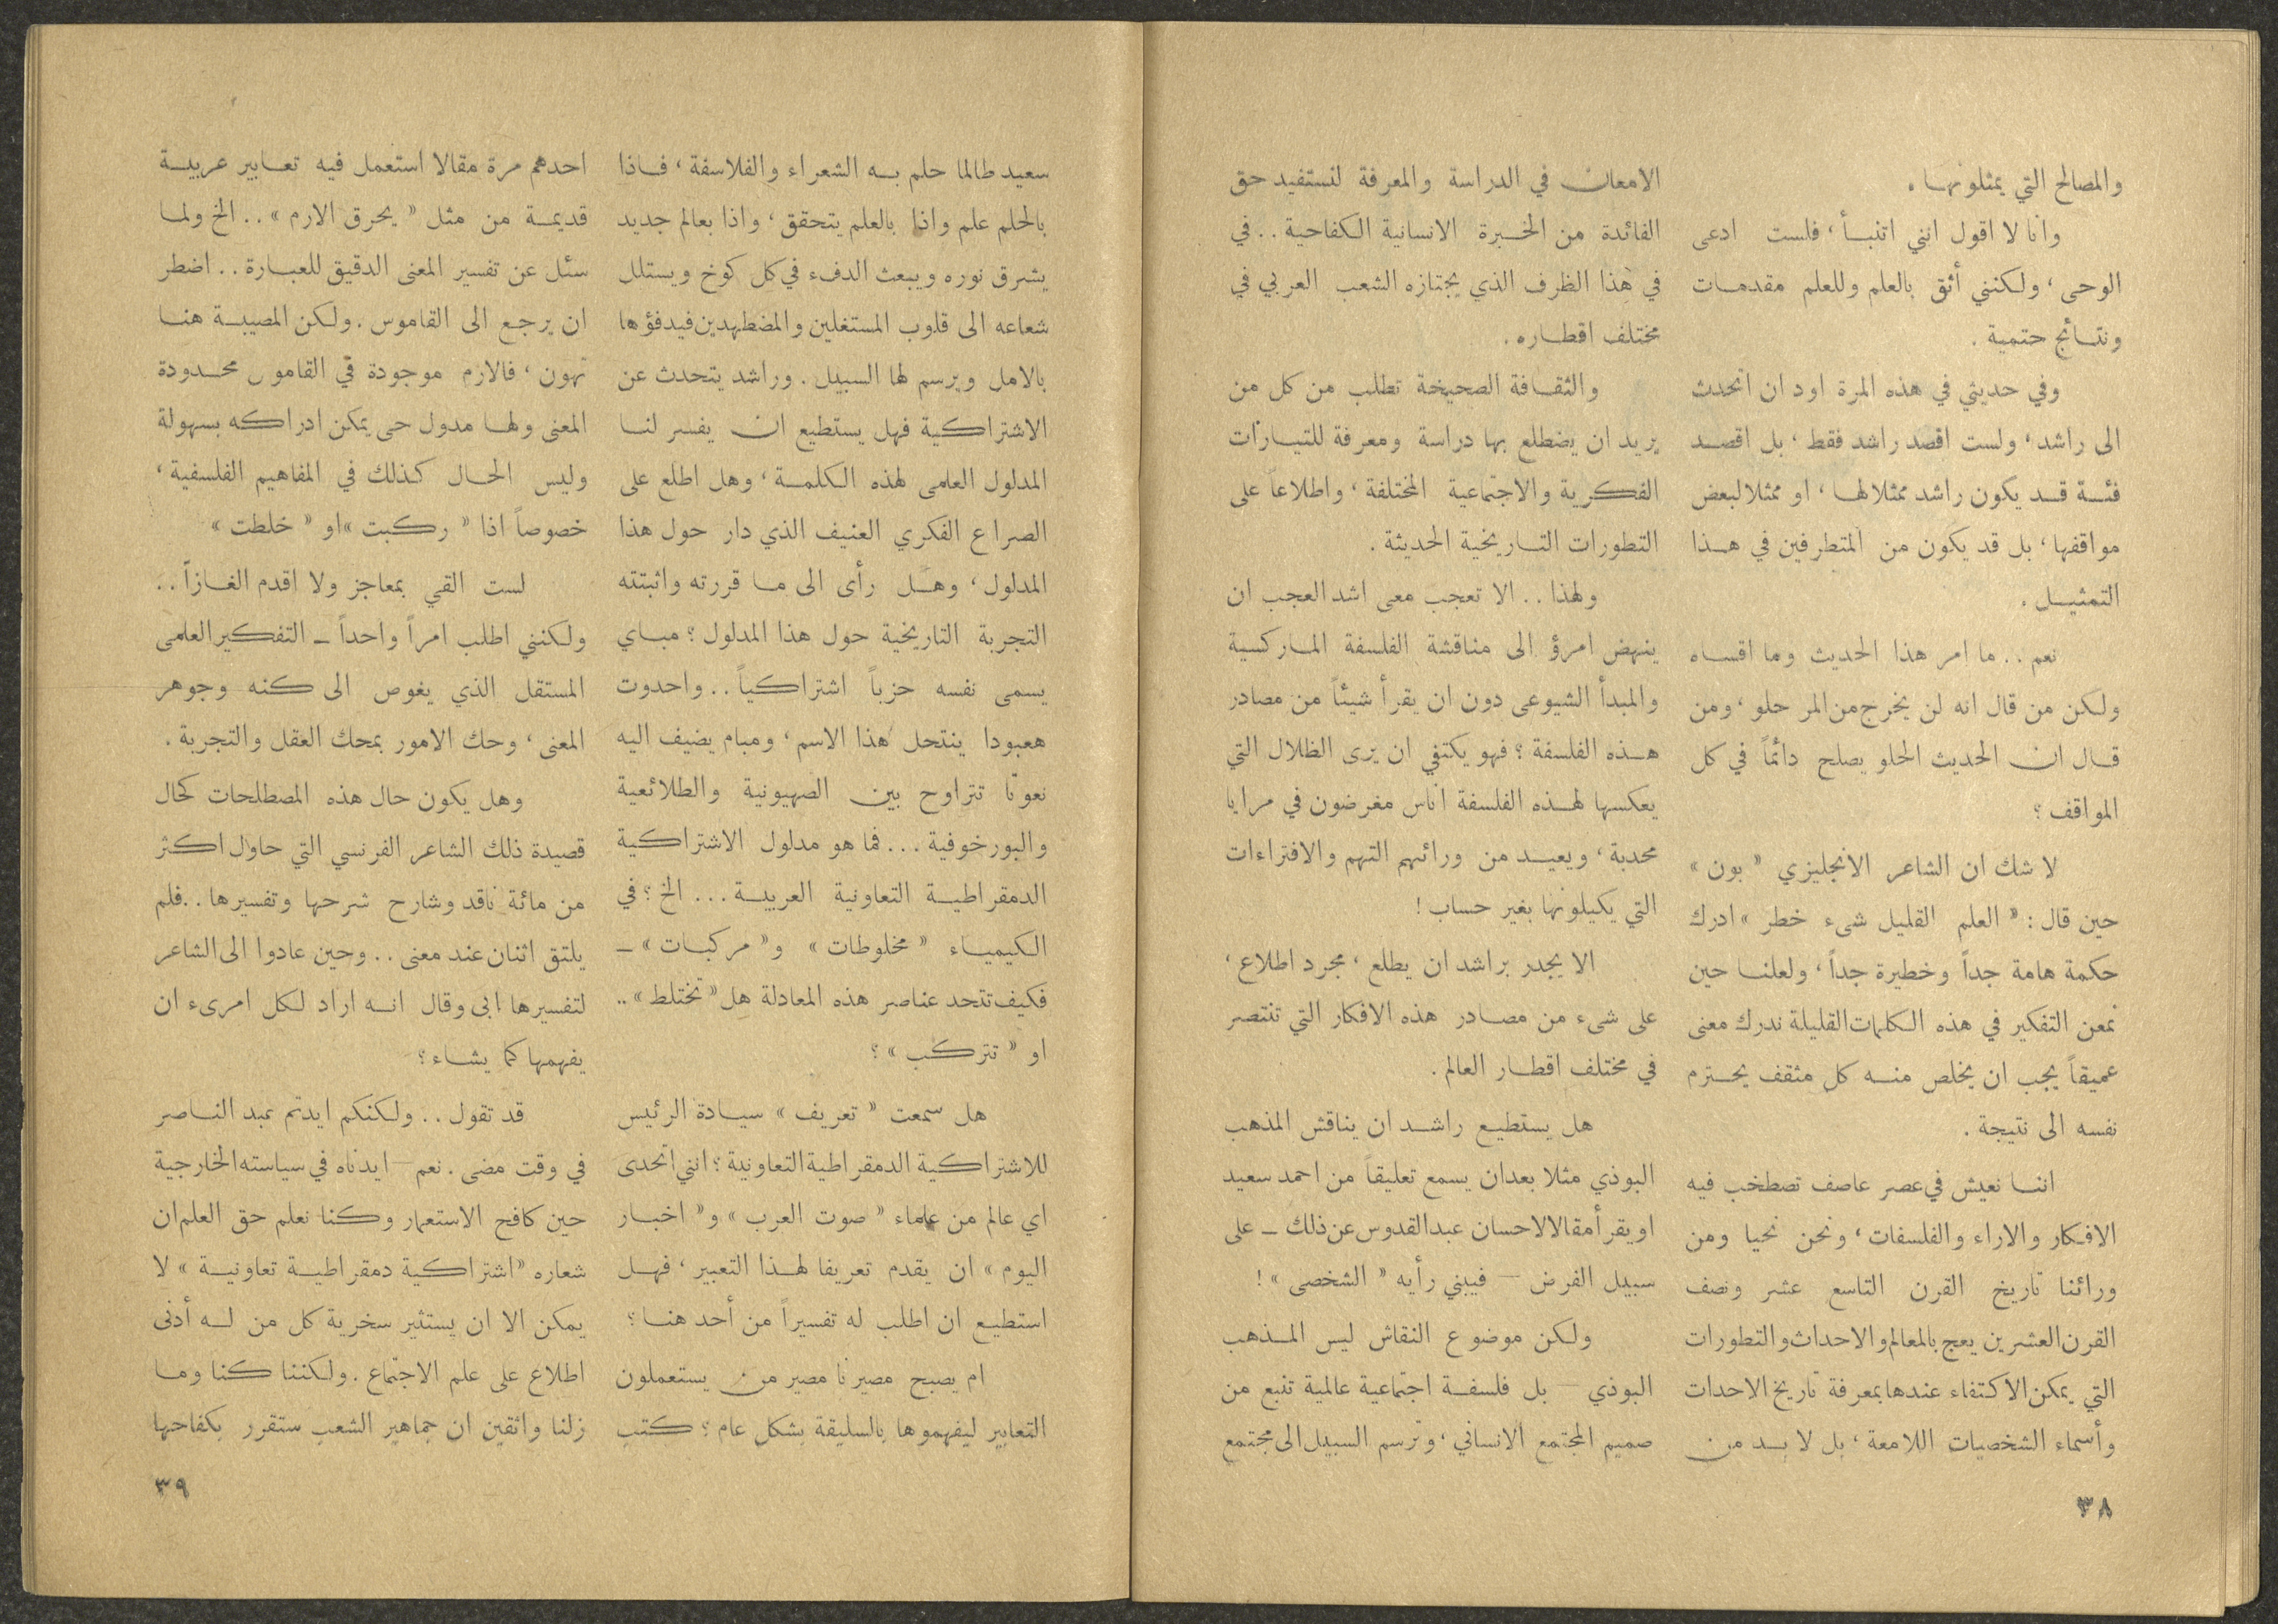 والمصالح التي يمثلونها .
وانا لا اقول انني اتنبأ ، فلست ادعى
الوحى ، ولكنني أثق بالعلم وللعلم مقدمات
ونتائج حتمية .
وفي حديثي في هذه المرة اود ان اتحدث
الى راشد ، ولست اقصد راشد فقط ، بل اقصد
فئة قد يكون راشد ممثلا لها ، او ممثلا لبعض
مواقفها ، بل قد يكون من المتطرفين في هذا
التمثيل .
نعم .. ما امر هذا الحديث وما اقساه
ولكن من قال انه لن يخرج من المر حلو ، ومن
قال ان الحديث الحلو يصلح دائماً في كل
المواقف ؟
لا شك ان الشاعر الانجليزي « بون »
حين قال : « العلم القليل شىء خطر » ادرك
حكمة هامة جداً وخطيرة جداً ، ولعلنا حين
نمعن التفكير في هذه الكلمات القليلة ندرك معنى
عميقاً يجب ان يخلص منه كل مثقف يحترم
نفسه الى نتيجة .
اننا نعيش في عصر عاصف تصطخب فيه
الافكار والاراء والفلسفات ، ونحن نحيا ومن
ورائنا تاريخ القرن التاسع عشر ونصف
القرن العشرين يعج بالمعالم والاحداث والتطورات
التي يمكن الاكتفاء عندها بمعرفة تاريخ الاحداث
وأسماء الشخصيات اللامعة ، بل لا بد من
الامعان في الدراسة والمعرفة لنستفيد حق
الفائدة من الخبرة الانسانية الكفاحية .. في
في هذا الظرف الذي يجتازه الشعب العربي في
مختلف اقطاره .
والثقافة الصحيحة تطلب من كل من
يريد ان يضطلع بها دراسة ومعرفة للتيارات
الفكرية والاجتماعية المختلفة ، واطلاعاً على
التطورات التاريخية الحديثة .
ولهذا .. الا تعجب معى اشد العجب ان
ينهض امرؤ الى مناقشة الفلسفة الماركسية
والمبدأ الشيوعى دون ان يقرأ شيئاً من مصادر
هذه الفلسفة ؟ فهو يكتفي ان يرى الظلال التي
يعكسها لهذه الفلسفة اناس مغرضون في مرايا
محدبة ، ويعيد من ورائهم التهم والافتراءات
التي يكيلونها بغير حساب !
الا يجدر براشد ان يطلع ، مجرد اطلاع ،
على شىء من مصادر هذه الافكار التي تنتصر
في مختلف اقطار العالم .
هل يستطيع راشد ان يناقش المذهب
البوذي مثلا بعد ان يسمع تعليقاً من احمد سعيد
او يقرأ مقالا لاحسان عبد القدوس عن ذلك ـ على
سبيل الفرض — فيبني رأيه « الشخصى » !
ولكن موضوع النقاش ليس المذهب
البوذي — بل فلسفة اجتماعية عالمية تنبع من
صميم المجتمع الانساني ، وترسم السبيل الى مجتمع
٣٨
سعيد طالما حلم به الشعراء والفلاسفة ، فاذا
بالحلم علم واذا بالعلم يتحقق ، واذا بعالم جديد
يشرق نوره ويبعث الدفء في كل كوخ ويستلل
شعاعه الى قلوب المستغلين والمضطهدين فيدفؤها
بالامل ويرسم لها السبيل . وراشد يتحدث عن
الاشتراكية فهل يستطيع ان يفسر لنا
المدلول العلمى لهذه الكلمة ، وهل اطلع على
الصراع الفكري العنيف الذي دار حول هذا
المدلول ، وهل رأى الى ما قررته واثبتته
التجربة التاريخية حول هذا المدلول ؟ مباي
يسمى نفسه حزباً اشتراكياً .. واحدوت
هعبودا ينتحل هذا الاسم ، ومبام يضيف اليه
نعوتا تتراوح بين الصهيونية والطلائعية
والبورخوفية ... فما هو مدلول الاشتراكية
الدمقراطية التعاونية العربية ... الخ ؟ في
الكيمياء « مخلوطات » و « مركبات » ـ
فكيف تتحد عناصر هذه المعادلة هل « تختلط » ..
او « تتركب » ؟
هل سمعت « تعريف » سيادة الرئيس
للاشتراكية الدمقراطية التعاونية ؟ انني اتحدى
اي عالم من علماء « صوت العرب » و « اخبار
اليوم » ان يقدم تعريفا لهذا التعبير ، فهل
استطيع ان اطلب له تفسيراً من أحد هنا ؟
ام يصبح مصيرنا مصير من يستعملون
التعابير ليفهموها بالسليقة بشكل عام ؟ كتب
احدهم مرة مقالا استعمل فيه تعابير عربية
قديمة من مثل « يحرق الارم » .. الخ ولما
سئل عن تفسير المعنى الدقيق للعبارة .. اضطر
ان يرجع الى القاموس . ولكن المصيبة هنا
تهون ، فالارم موجودة في القاموس محدودة
المعنى ولها مدول حى يمكن ادراكه بسهولة
وليس الحال كذلك في المفاهيم الفلسفية ،
خصوصاً اذا « ركبت » او « خلطت »
لست القي بمعاجز ولا اقدم الغازاً ..
ولكنني اطلب امراً واحداً ـ التفكير العلمى
المستقل الذي يغوص الى كنه وجوهر
المعنى ، وحك الامور بمحك العقل والتجربة .
وهل يكون حال هذه المصطلحات كحال
قصيدة ذلك الشاعر الفرنسي التي حاول اكثر
من مائة ناقد وشارح شرحها وتفسيرها .. فلم
يلتق اثنان عند معنى .. وحين عادوا الى الشاعر
لتفسيرها ابى وقال انه اراد لكل امرىء ان
يفهمها كما يشاء ؟
قد تقول .. ولكنكم ايدتم عبد الناصر
في وقت مضى . نعم — ايدناه في سياسته الخارجية
حين كافح الاستعمار وكنا نعلم حق العلم ان
شعاره « اشتراكية دمقراطية تعاونية » لا
يمكن الا ان يستثير سخرية كل من له أدنى
اطلاع على علم الاجتماع . ولكننا كنا وما
زلنا واثقين ان جماهير الشعب ستقرر بكفاحها
٣٩